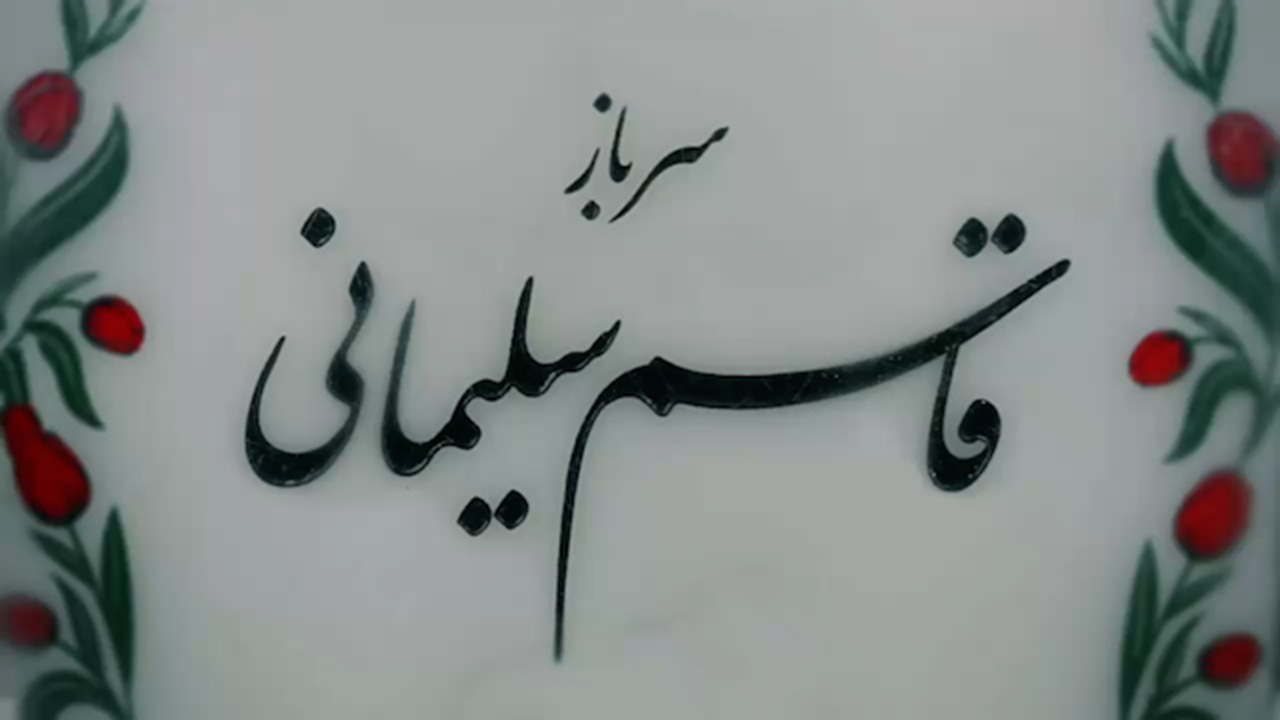 سرباز
قاسم سلیمانی